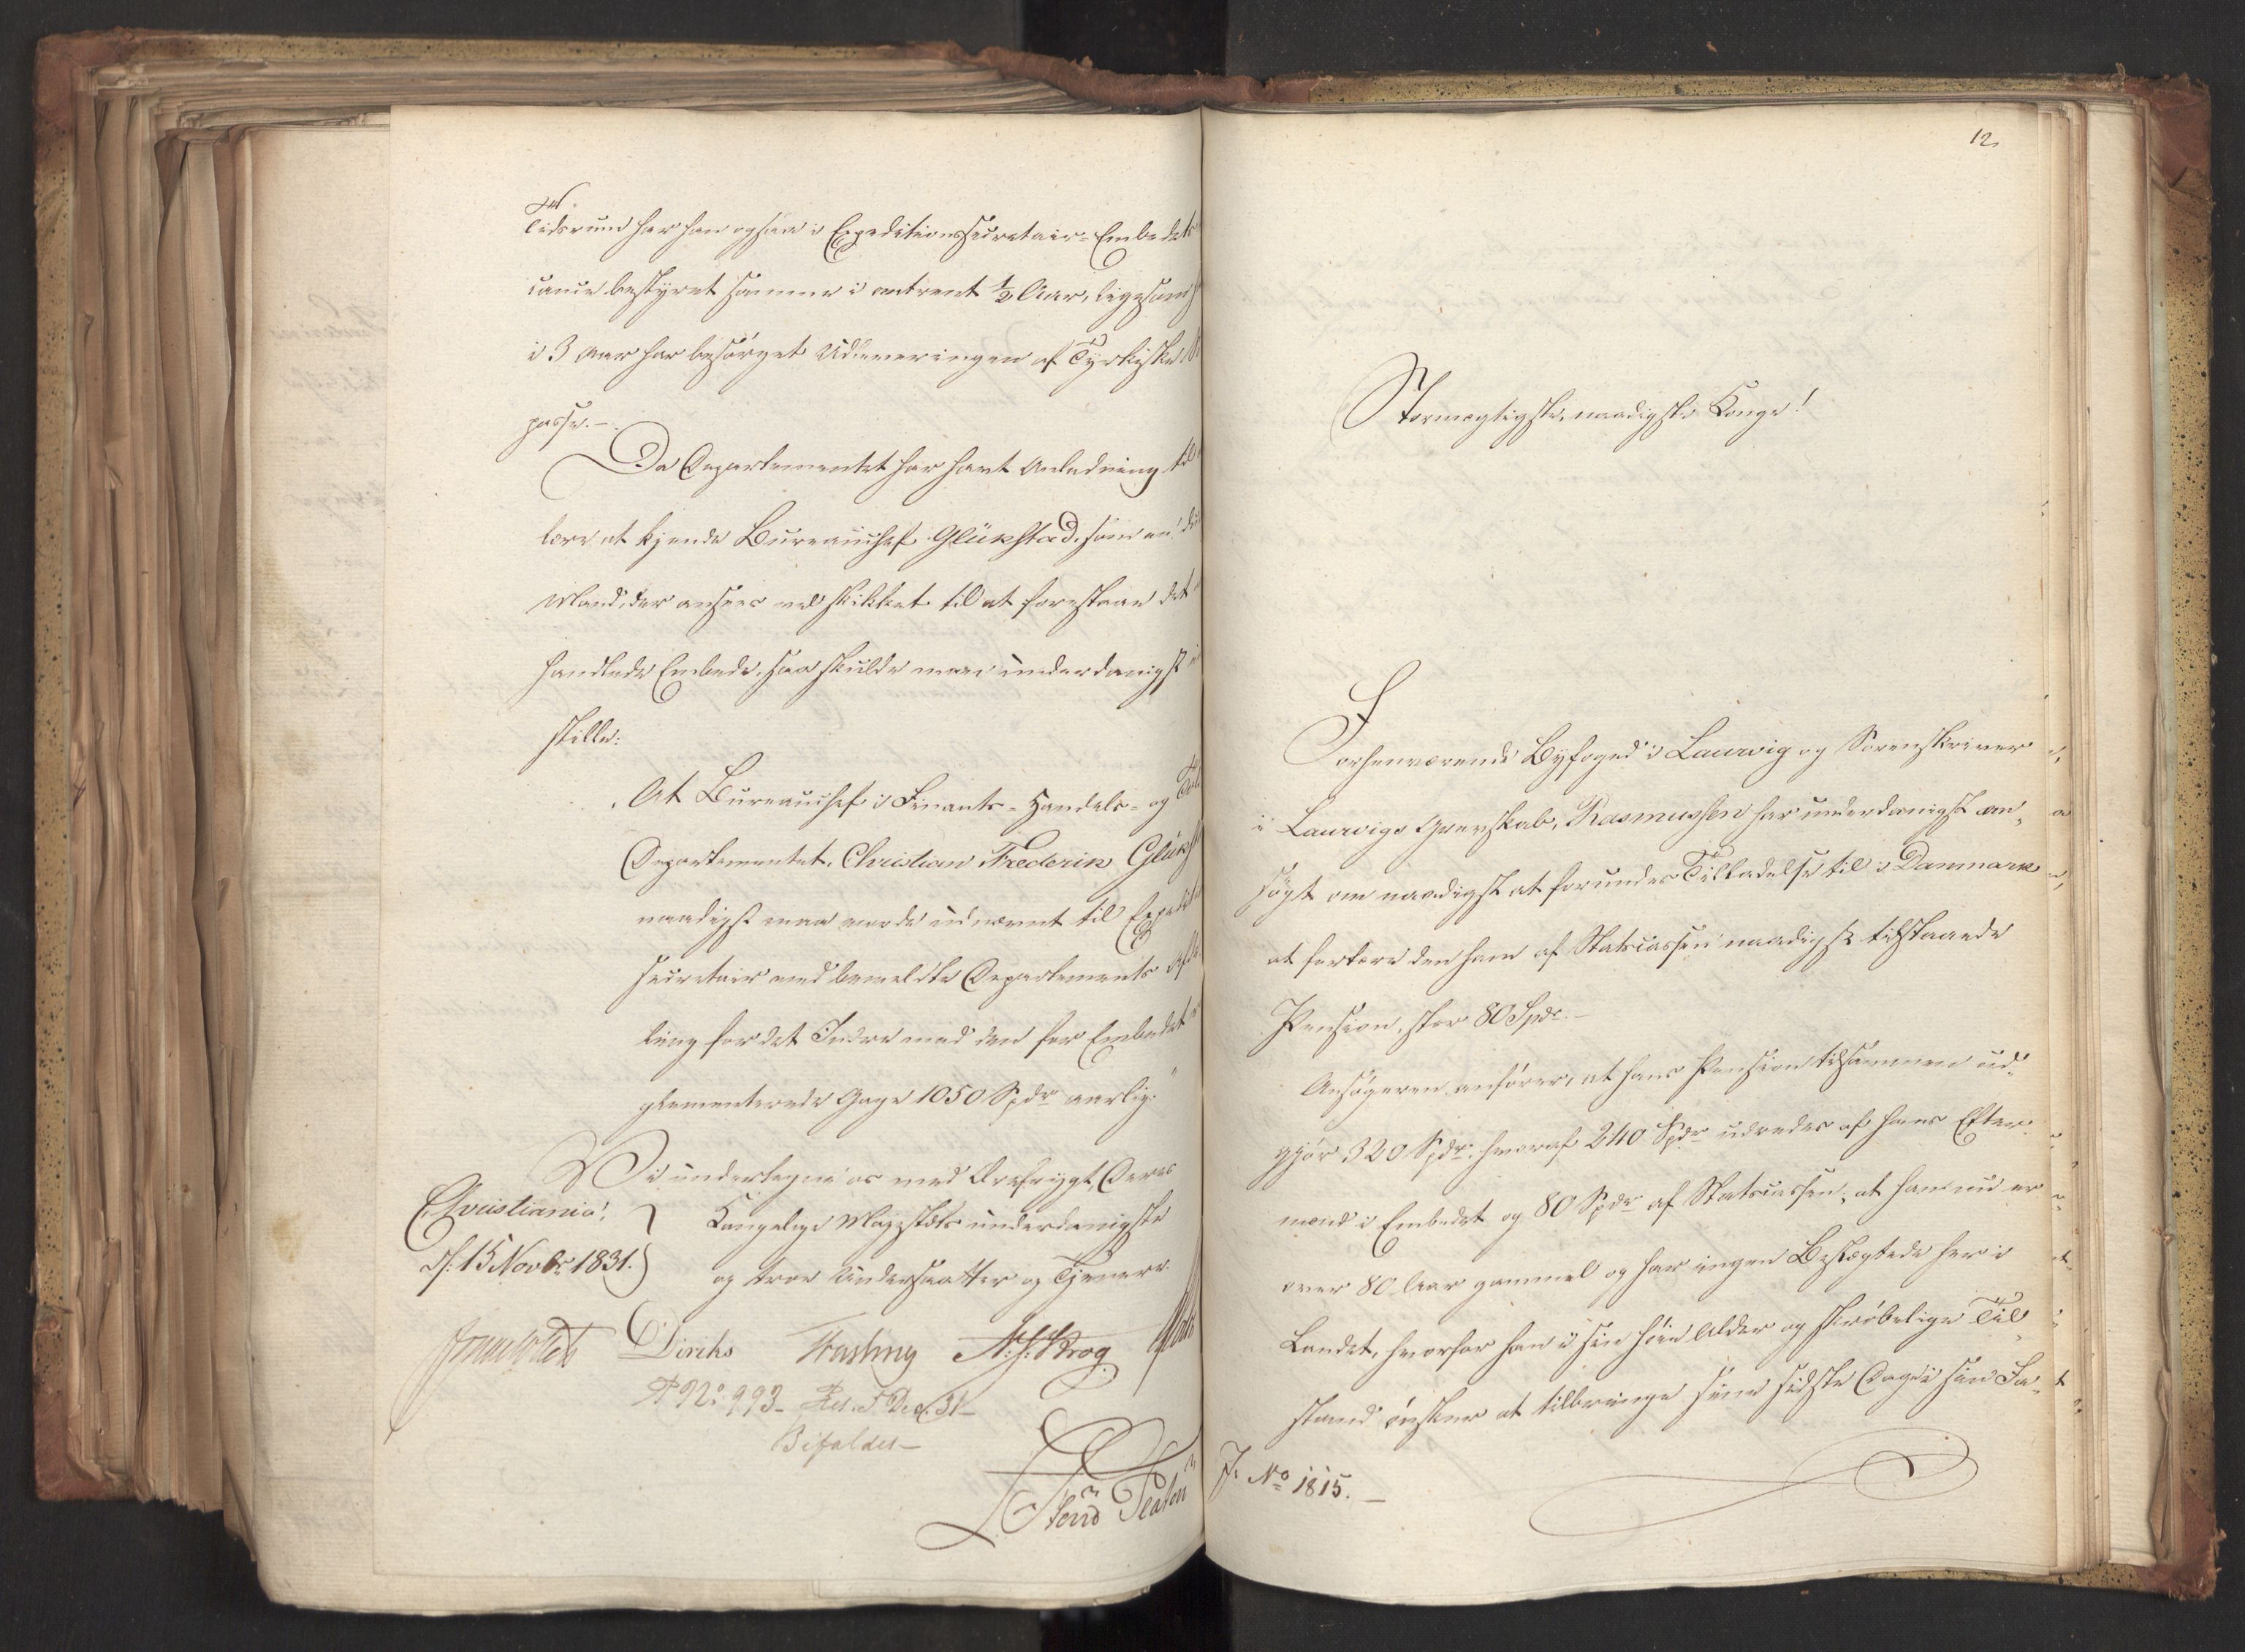 Tidsrum har han ogsaa i Expeditionssecretair-Embedets
cance bestyret samme i omtrent ½ Aar, ligesom
i 3 Aar har besørget Udleveringen af Tyrkiske
passe.-
Da Departementet har havt Anledning til
lære at kjende Bureauchef Glückstad, som en
Mand, der ansees vel skikket til at forestaae det
handlede Embede, saa skulde man underdanigst
stille:
At Bureauchef i Finants- Handels- og Told
Departementet, Christian Frederik Glück
naadigst maa vorde udnævnt til Expedit
secretair ved bemeldte Departements Afde
ling for det Indre med den for Embedet
glementerede Gage 1050 Spdr aarlig."
Vi undertegne os med Ærefrygt, Deres
Kongelige Majestæts underdanigste
og troe Undersaatter og Tjenere.
Christiania,
d. 15 Novbr 1831.
Diriks Fasting Krog
P No 993- Res. 5 Dec. 31-
Bifaldes-
12.
Stormægtigste, naadigste Konge!
Forhenværende Byfoged i Laurvig og Sorenskriver
i Laurvigs Grevskab, Rasmussen har underdanigst an„
søgt om naadigst at forundes Tilladelse til i Danmark
at fortære den ham af Statscassen naadigst tilstaaede
Pension, stor 80 Spdr.-
Ansøgeren anfører, at hans Pension tilsammen ud„
gjør 320 Spdr, hvoraf 240 Spdr udredes af hans Efter„
mand i Embedet og 80 Spdr af Statscassen, at han nu er
over 80 Aar gammel og har ingen Beslægtede her i
Landet, hvorfor han i sin høie Alder og skrøbelige Til„
stand ønsker at tilbringe sine sidste Dage i sin Fø„
J. No 1815.-